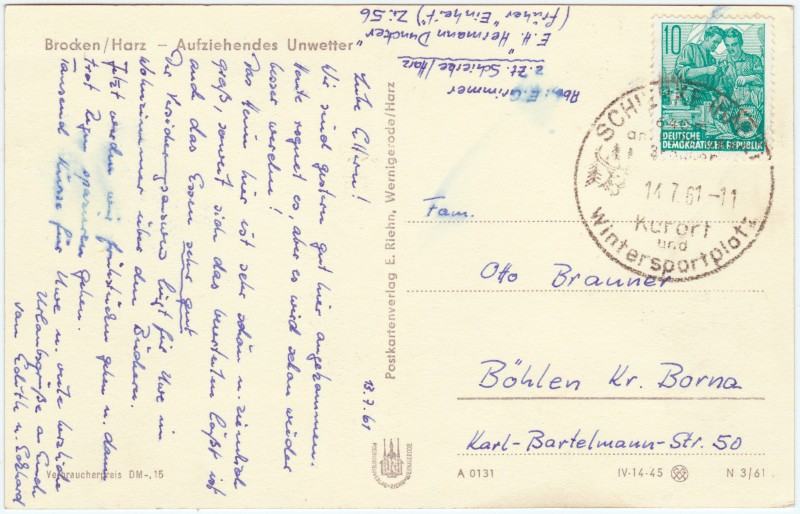 Brocken/Harz — Aufziehendes Unwetter
Abs.: E. Grimmer
z. Zt. Schierke/Harz
E. H. "Hermann Duncker"
(früher "Einheit") Zi. 56
10
5
DEUTSCHE
DEMOKRATISCHE REPUBLIK
SCHIERKE
am
Brocken
14.7.61-11
Kurort
und
Wintersportplatz
13.7.61
Liebe Eltern!
Wir sind gestern gut hier angekommen.
Heute regnet es, aber es wird schon wieder
besser werden!
Das Heim hier ist sehr schön u. ziemlich
groß, soweit sich das beurteilen läßt ist
auch das Essen sehr gut
Der liegt für Uwe im
Wohnzimmer über den Büchern.
Jetzt werden wir frühstücken gehen u. dann
trotz Regen spazieren gehen.
Tausend Küsse für Uwe u. viele herzliche
Urlaubsgrüße an Euch
von Edith u. Eckhard
Postkartenverlag E. Riehn, Wernigerode/Harz
Fam.
Otto Brauner
Böhlen Kr. Borna
Karl-Bartelmann-Str. 50
Verbraucherpreis DM -,15
A 0131
IV-14-45
N 3/61